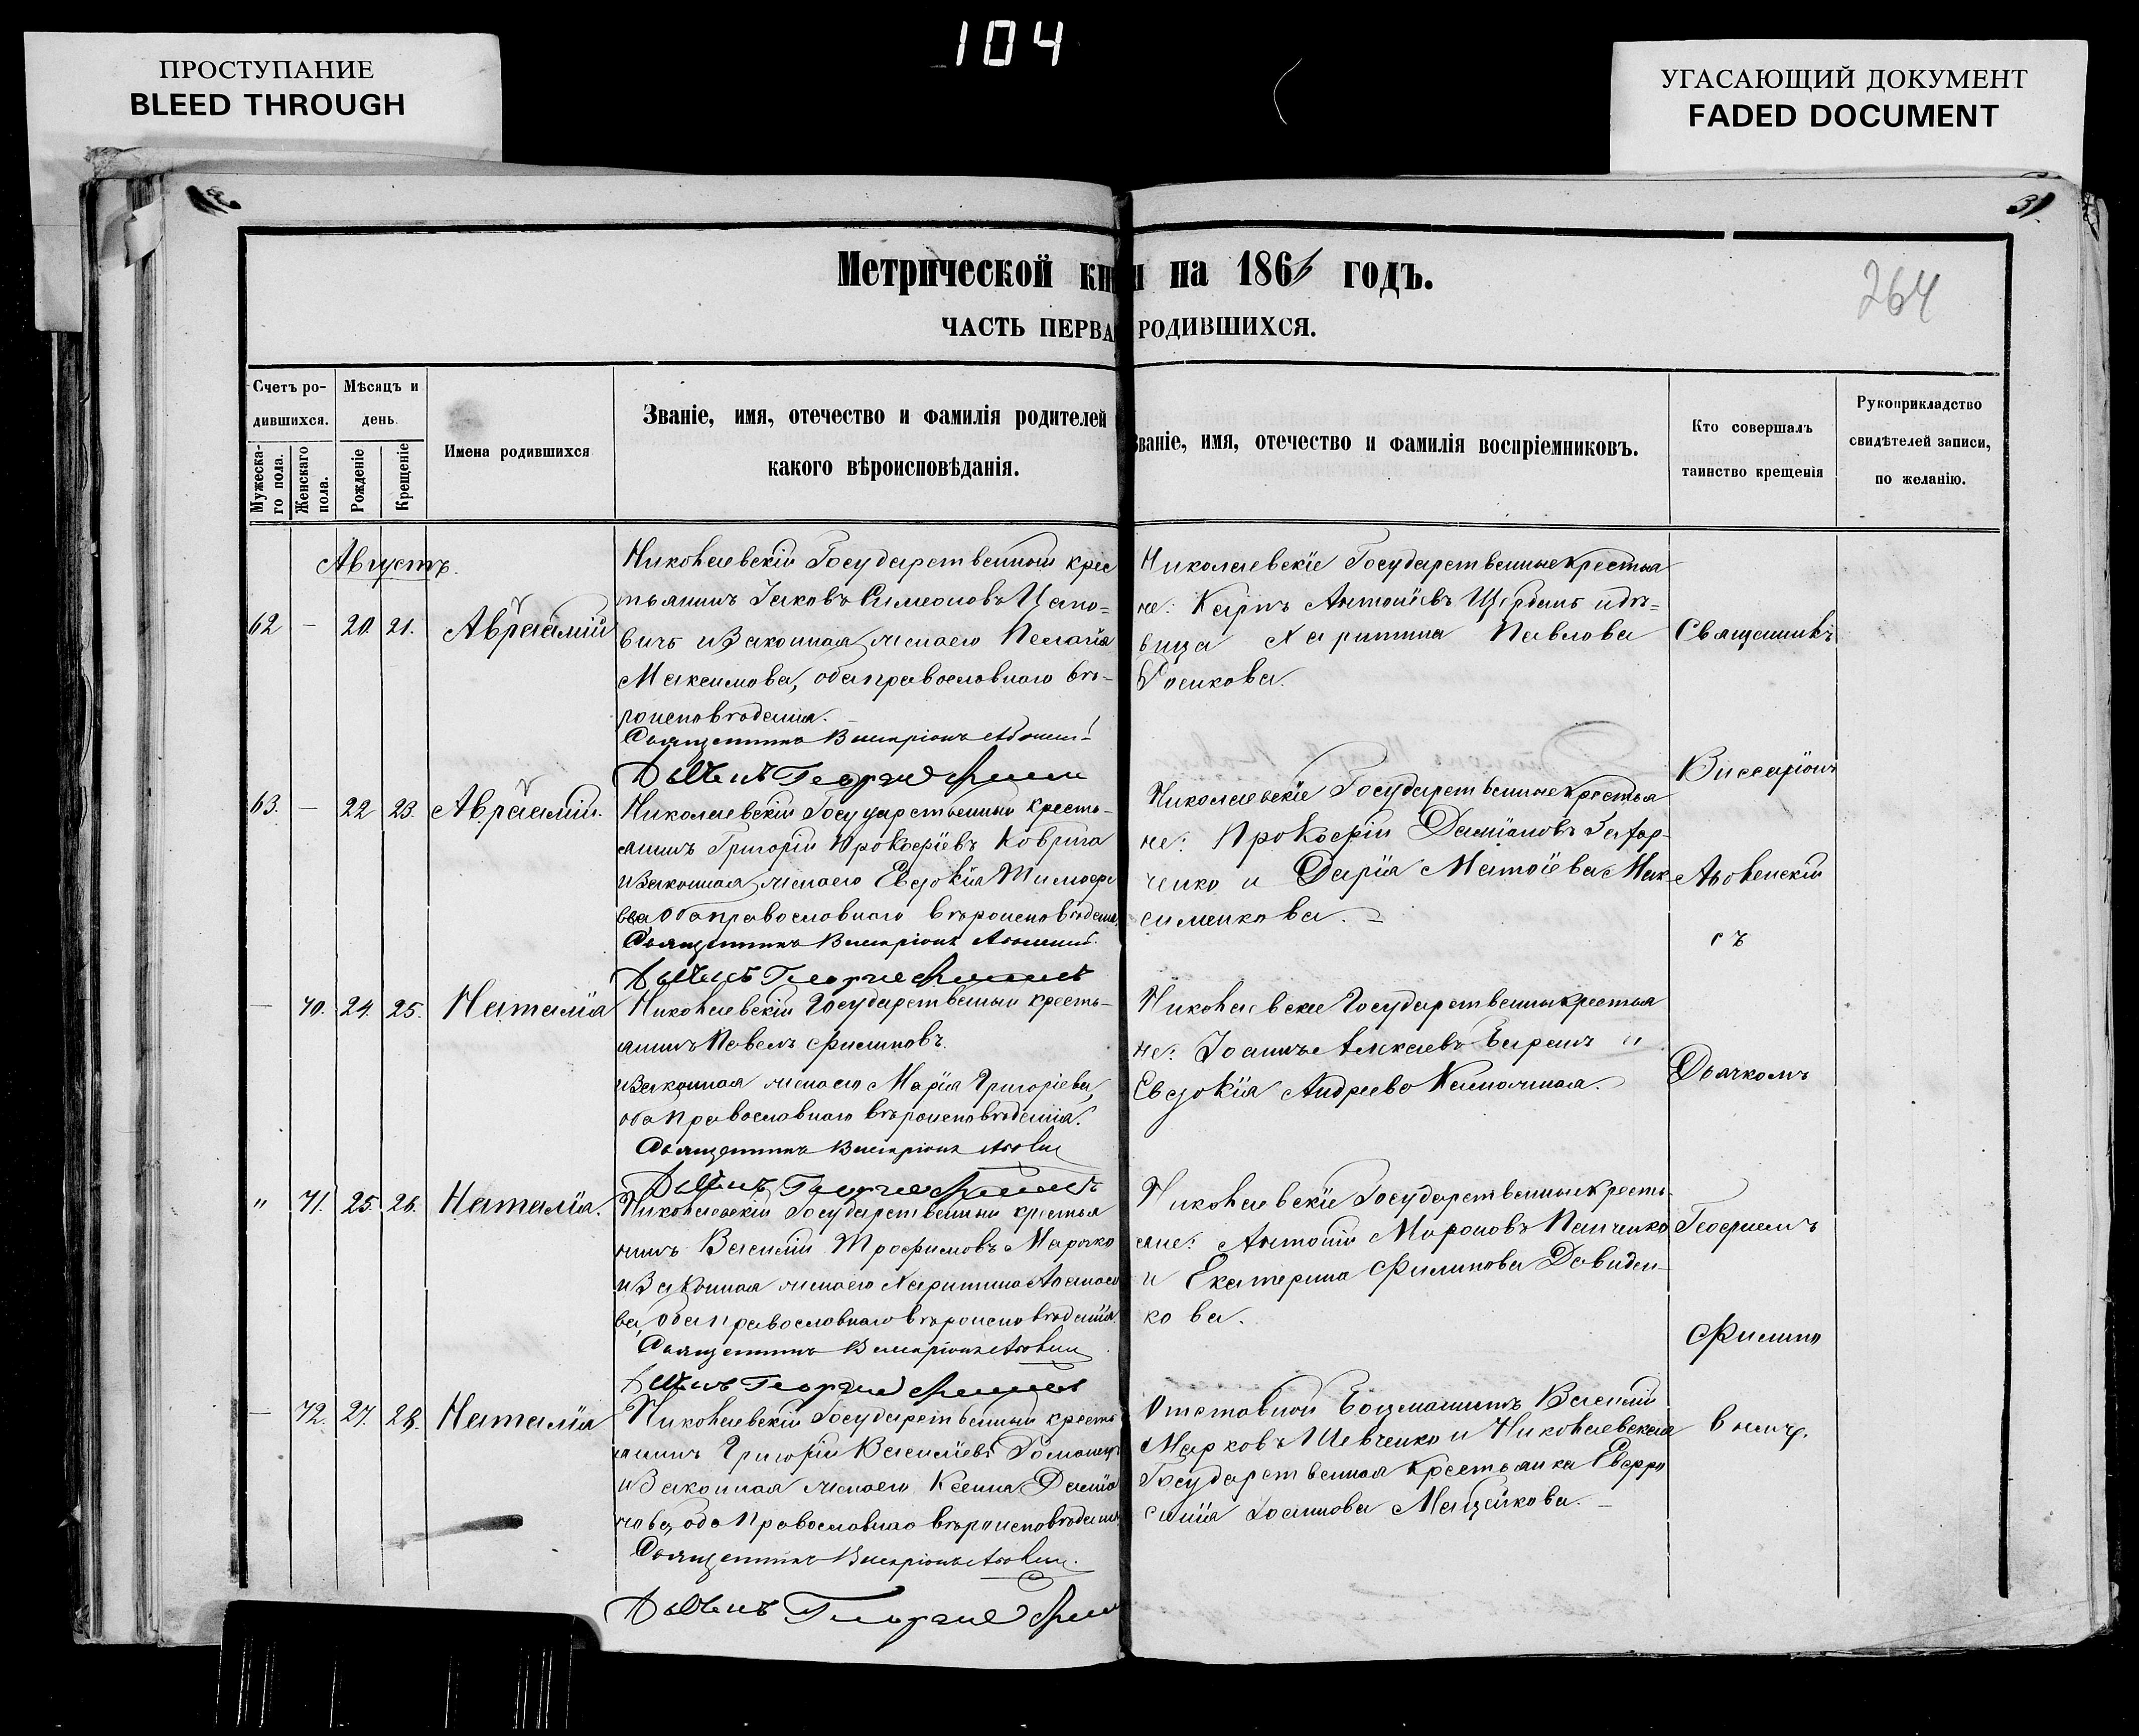 104
ПРОСТУПАНИЕ
BLEED THROUGH
УГАСАЮЩИЙ ДОКУМЕНТ
FADED DOCUMENT
31.
264
Метрической кн и на 186 годъ.
ЧАСТЬ ПЕРВА РОДИВШИХСЯ.
Счетъ ро-
дившихся.
Мужеска-
го пола.
Женскаго
пола.
Мѣсяцъ и
день.
Рожденіе
Крещеніе
Имена родившихся
Званіе, имя, отечество и фамилія родителей
какого вѣроисповѣданія.
Званіе, имя, отечество и фамилія воспріемниковъ.
Кто совершалъ
таинство крещенія
Рукоприкладство
свидѣтелей записи,
по желанію.
Августъ.
62 — 20. 21. Авраамій
Николаевскій Государственный крес
тьянинъ Іаковъ Симеоновъ Цапо-
вичъ и Законная жена его Пелагія
Максимова, оба православнаго вѣ-
роисповѣданія.
Священникъ Виссаріонъ
Дьячекъ Георгіе
Николаевскіе Государственные крестья
не: Карпъ Антоніевъ Щербань и дѣ-
вица Харитина Павлова
63. — 22 23. Авраамій.
Николаевскій Государственный кресть-
янинъ Григорій Прокофіевъ Коврига
и Законная жена его Евдокія Тимофе
ева оба православнаго вѣроисповѣданія
Священникъ Виссаріонъ
Дьячекъ Георгіе
Николаевскіе Государственные крестья
не: Прокофій Даміановъ
ченко и Дарія Матѳіева Мак-
сименкова.
— 70. 24. 25. Наталія
Николаевскій Государственный кресть-
янинъ Павелъ Филиповъ
и Законная жена его Марія Григоріева,
оба православнаго вѣроисповѣданія.
Священникъ Виссаріонъ
Дьячекъ Георгіе
Николаевскіе Государственные крестья
не: Іоаннъ и
Евдокія Андреева
" 71. 25. 26. Наталія.
Николаевскій Государственный крестья
нинъ Василій Трофимовъ Марочко
и Законная жена его Харитина
ва, оба православнаго вѣроисповѣданія.
Священникъ Виссаріонъ
Дьячекъ Георгіе
Николаевскіе Государственные кресть-
яне: Антоній Мироновъ Панченко
и Екатерина Филипова Давиден-
кова.
— 72. 27. 28. Наталія
Николаевскій Государственный кресть
янинъ Григорій Василіевъ Романец
и Законная жена его Ксенія Даміа
нова, оба Православнаго вѣроисповѣданія
Священникъ Виссаріонъ
Дьячекъ Георгіе
Отставной Боцманматъ Василій
Марковъ Шевченко и Николаевская
Государственная крестьянка Евфро
синія Іоаннова
Священникъ
Виссаріонъ
съ
Дьячкомъ